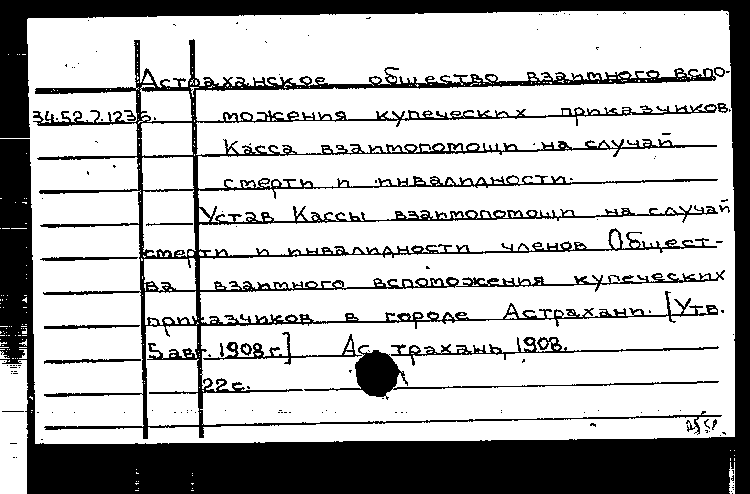 Астраханское общество взаимного вспо-
34.52.7.1236. можения купеческих приказчиков.
Касса взаимопомощи на случай
смерти и инвалидности.
Устав Кассы взаимопомощи на случай
смерти и инвалидности членов Общест-
ва взаимного вспоможения купеческих
приказчиков в городе Астрахани. [Утв.
5 авг. 1908 г.] Астрахань, 1908.
22 с.